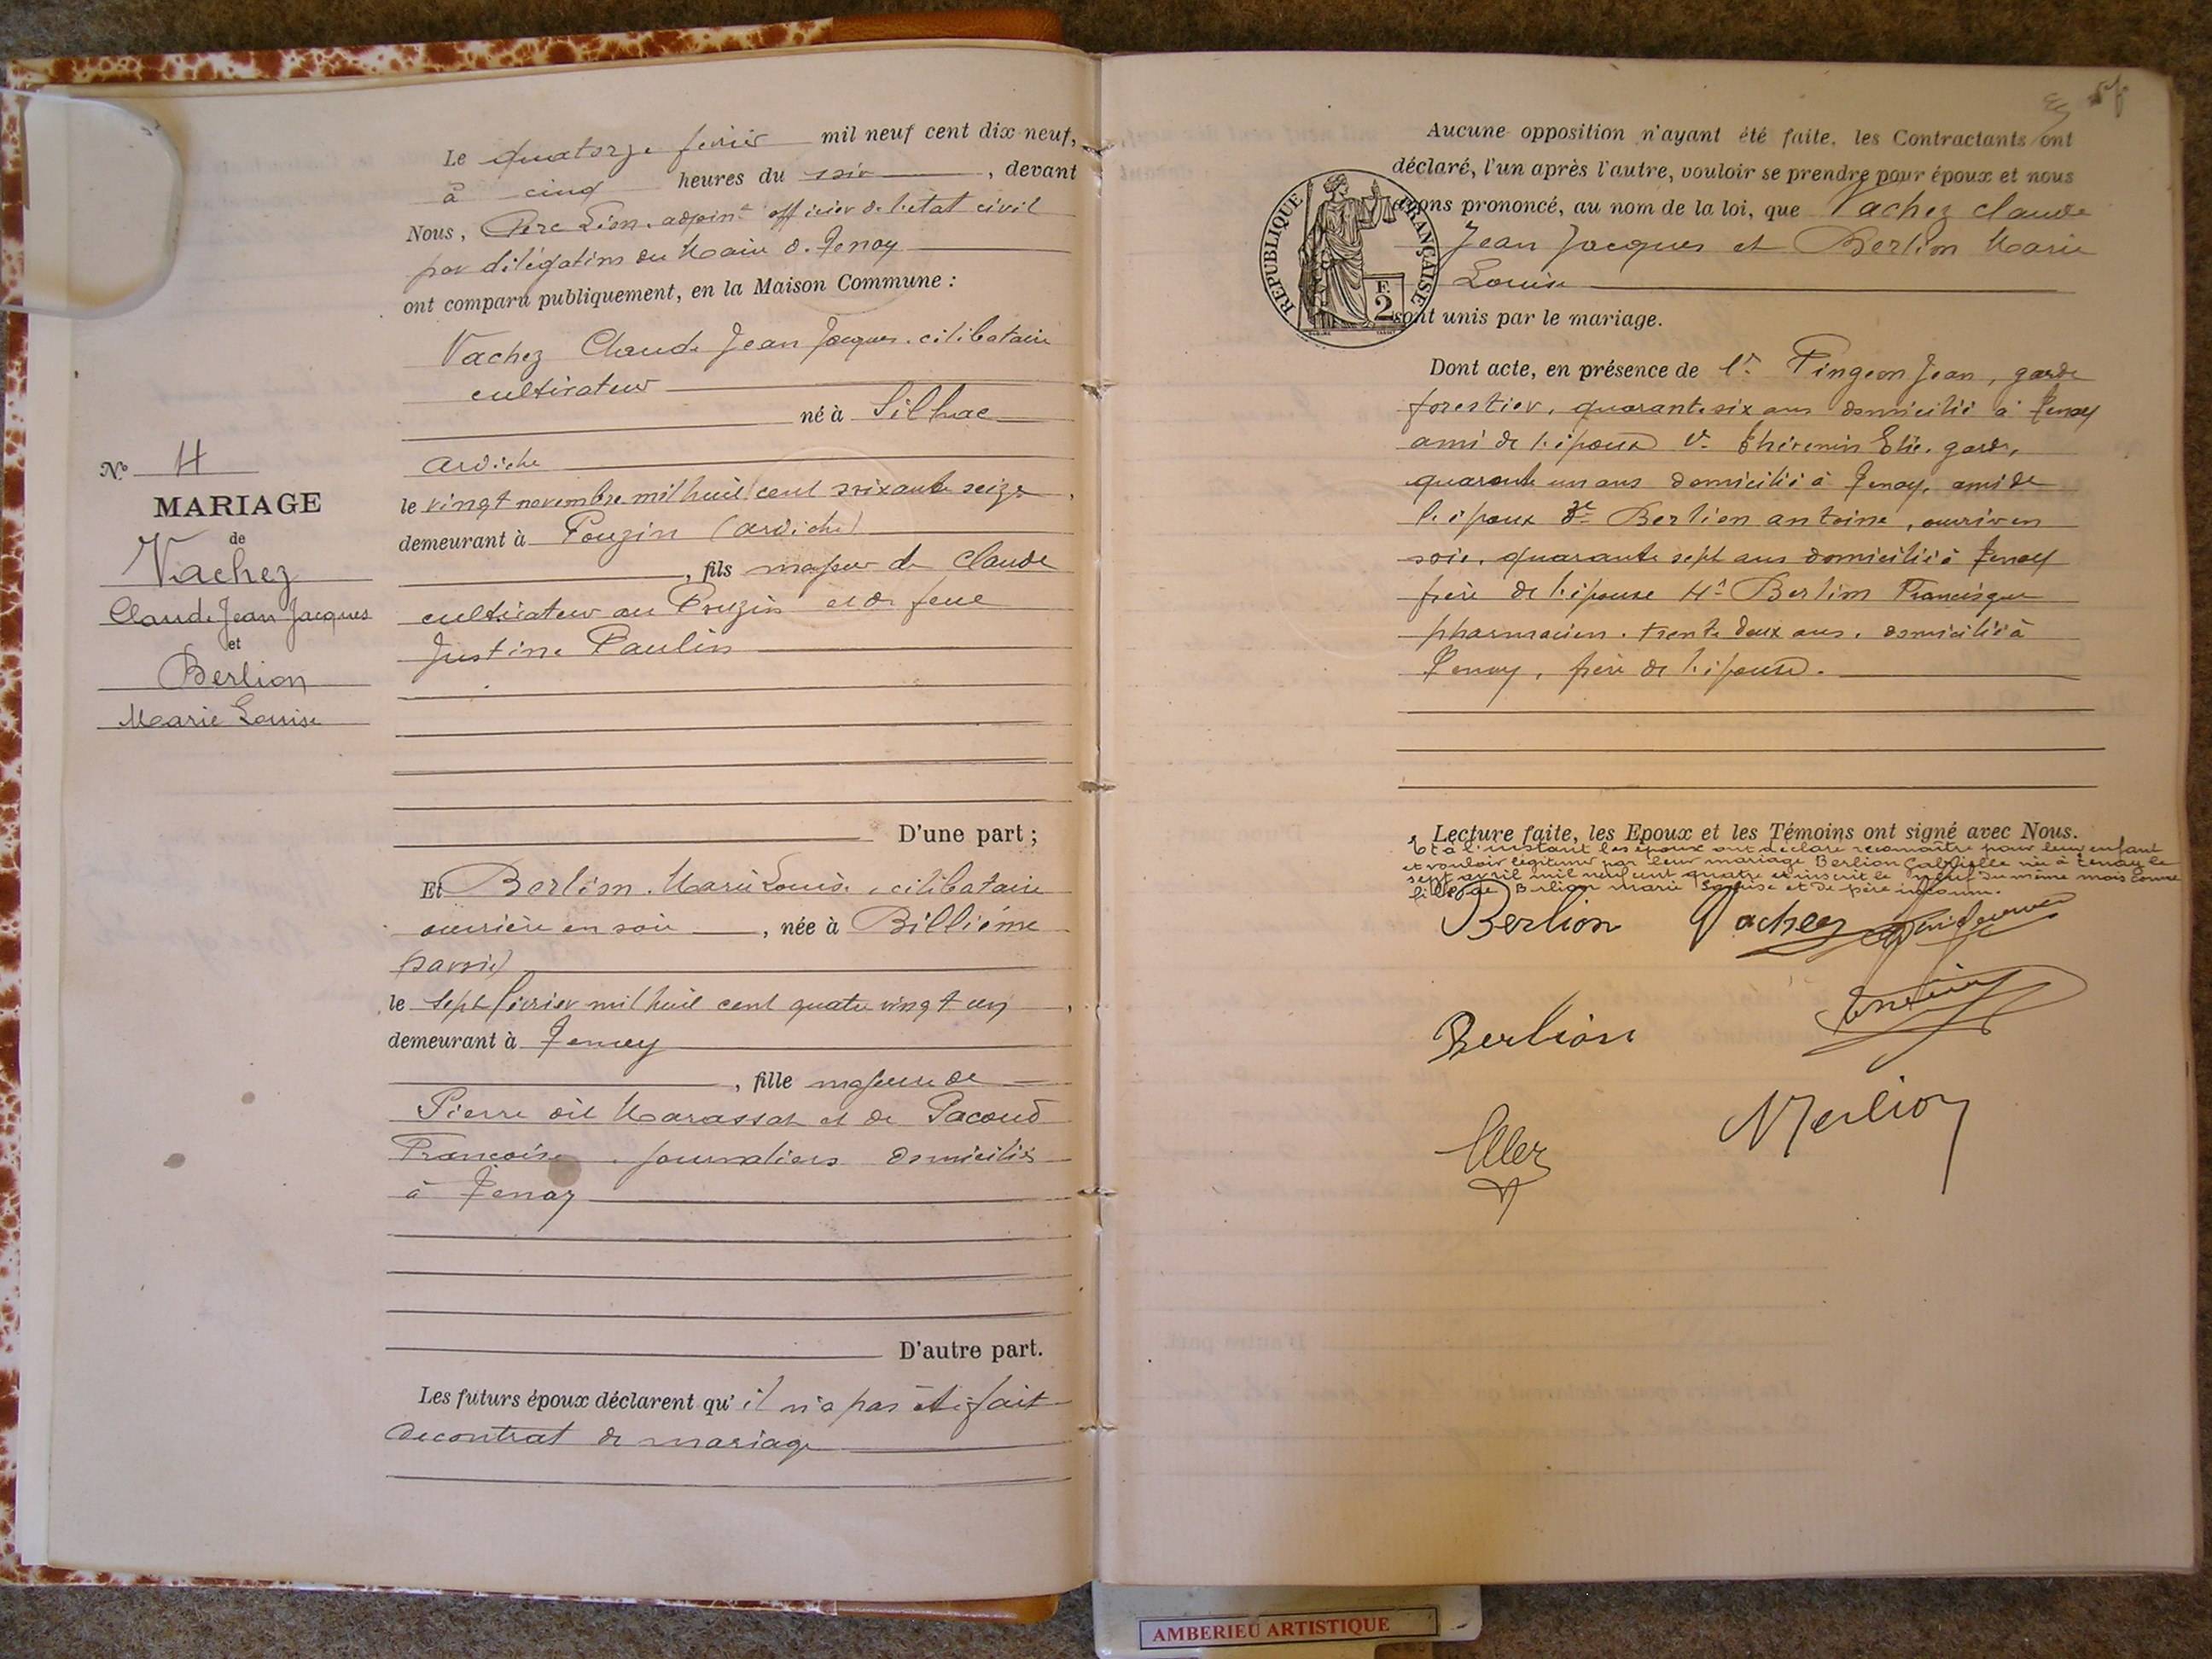 N.º 4
MARIAGE
de
Vachez
Claude Jean Jacques
et
Berlion
Marie Louise
Le quatorze février mil neuf cent dix-neuf,
à cinq heures du soir, devant
Nous, Léon, adjoint officier de l'état civil
par délégation du Maire de Tenay
ont comparu publiquement, en la Maison Commune :
Vachez Claude Jean Jacques. célibataire
cultivateur
né à Silhac
Ardèche
le vingt novembre mil huit cent soixante seize,
demeurant à Pouzin (Ardèche)
, fils majeur de Claude
cultivateur au Pouzin et de feue
Justine Paulin
D'une part ;
Et Berlion. Marie Louise, célibataire
ouvrière en soie, née à Billième
(Savoie)
le sept février mil huit cent quatre vingt un,
demeurant à Tenay
, fille majeure de
Pierre dit Marassat et de Pacoud
Françoise. journaliers domiciliés
à Tenay
D'autre part.
Les futurs époux déclarent qu'il n'a pas été fait
de contrat de mariage
Aucune opposition n'ayant été faite, les Contractants ont
déclaré, l'un après l'autre, vouloir se prendre pour époux et nous
avons prononcé, au nom de la loi, que Vachez Claude
Jean Jacques et Berlion Marie
Louise
sont unis par le mariage.
REPUBLIQUE FRANÇAISE
F.
2
Dont acte, en présence de 1º Pingeon Jean, garde
forestier, quarante six ans domicilié à Tenay
ami de l'époux 2º Thévenin Elie. garde,
quarante un ans domicilié à Tenay, ami de
l'époux 3e Berlion Antoine, ouvrier en
soie, quarante sept ans domicilié à Tenay
frère de l'épouse 4º Berlion Francisque
pharmacien. trente deux ans. domicilié à
Tenay, frère de l'épouse.
Lecture faite, les Epoux et les Témoins ont signé avec Nous.
Et à l'instant les époux ont déclaré reconnaître pour leur enfant
et vouloir légitimer par leur mariage Berlion Gabrielle née à Tenay le
sept avril mil neuf cent quatre et inscrit le neuf du même mois comme
fille de Berlion Marie Louise et de père inconnu.
Berlion Vachez
Berlion
Berlion
AMBERIEU ARTISTIQUE